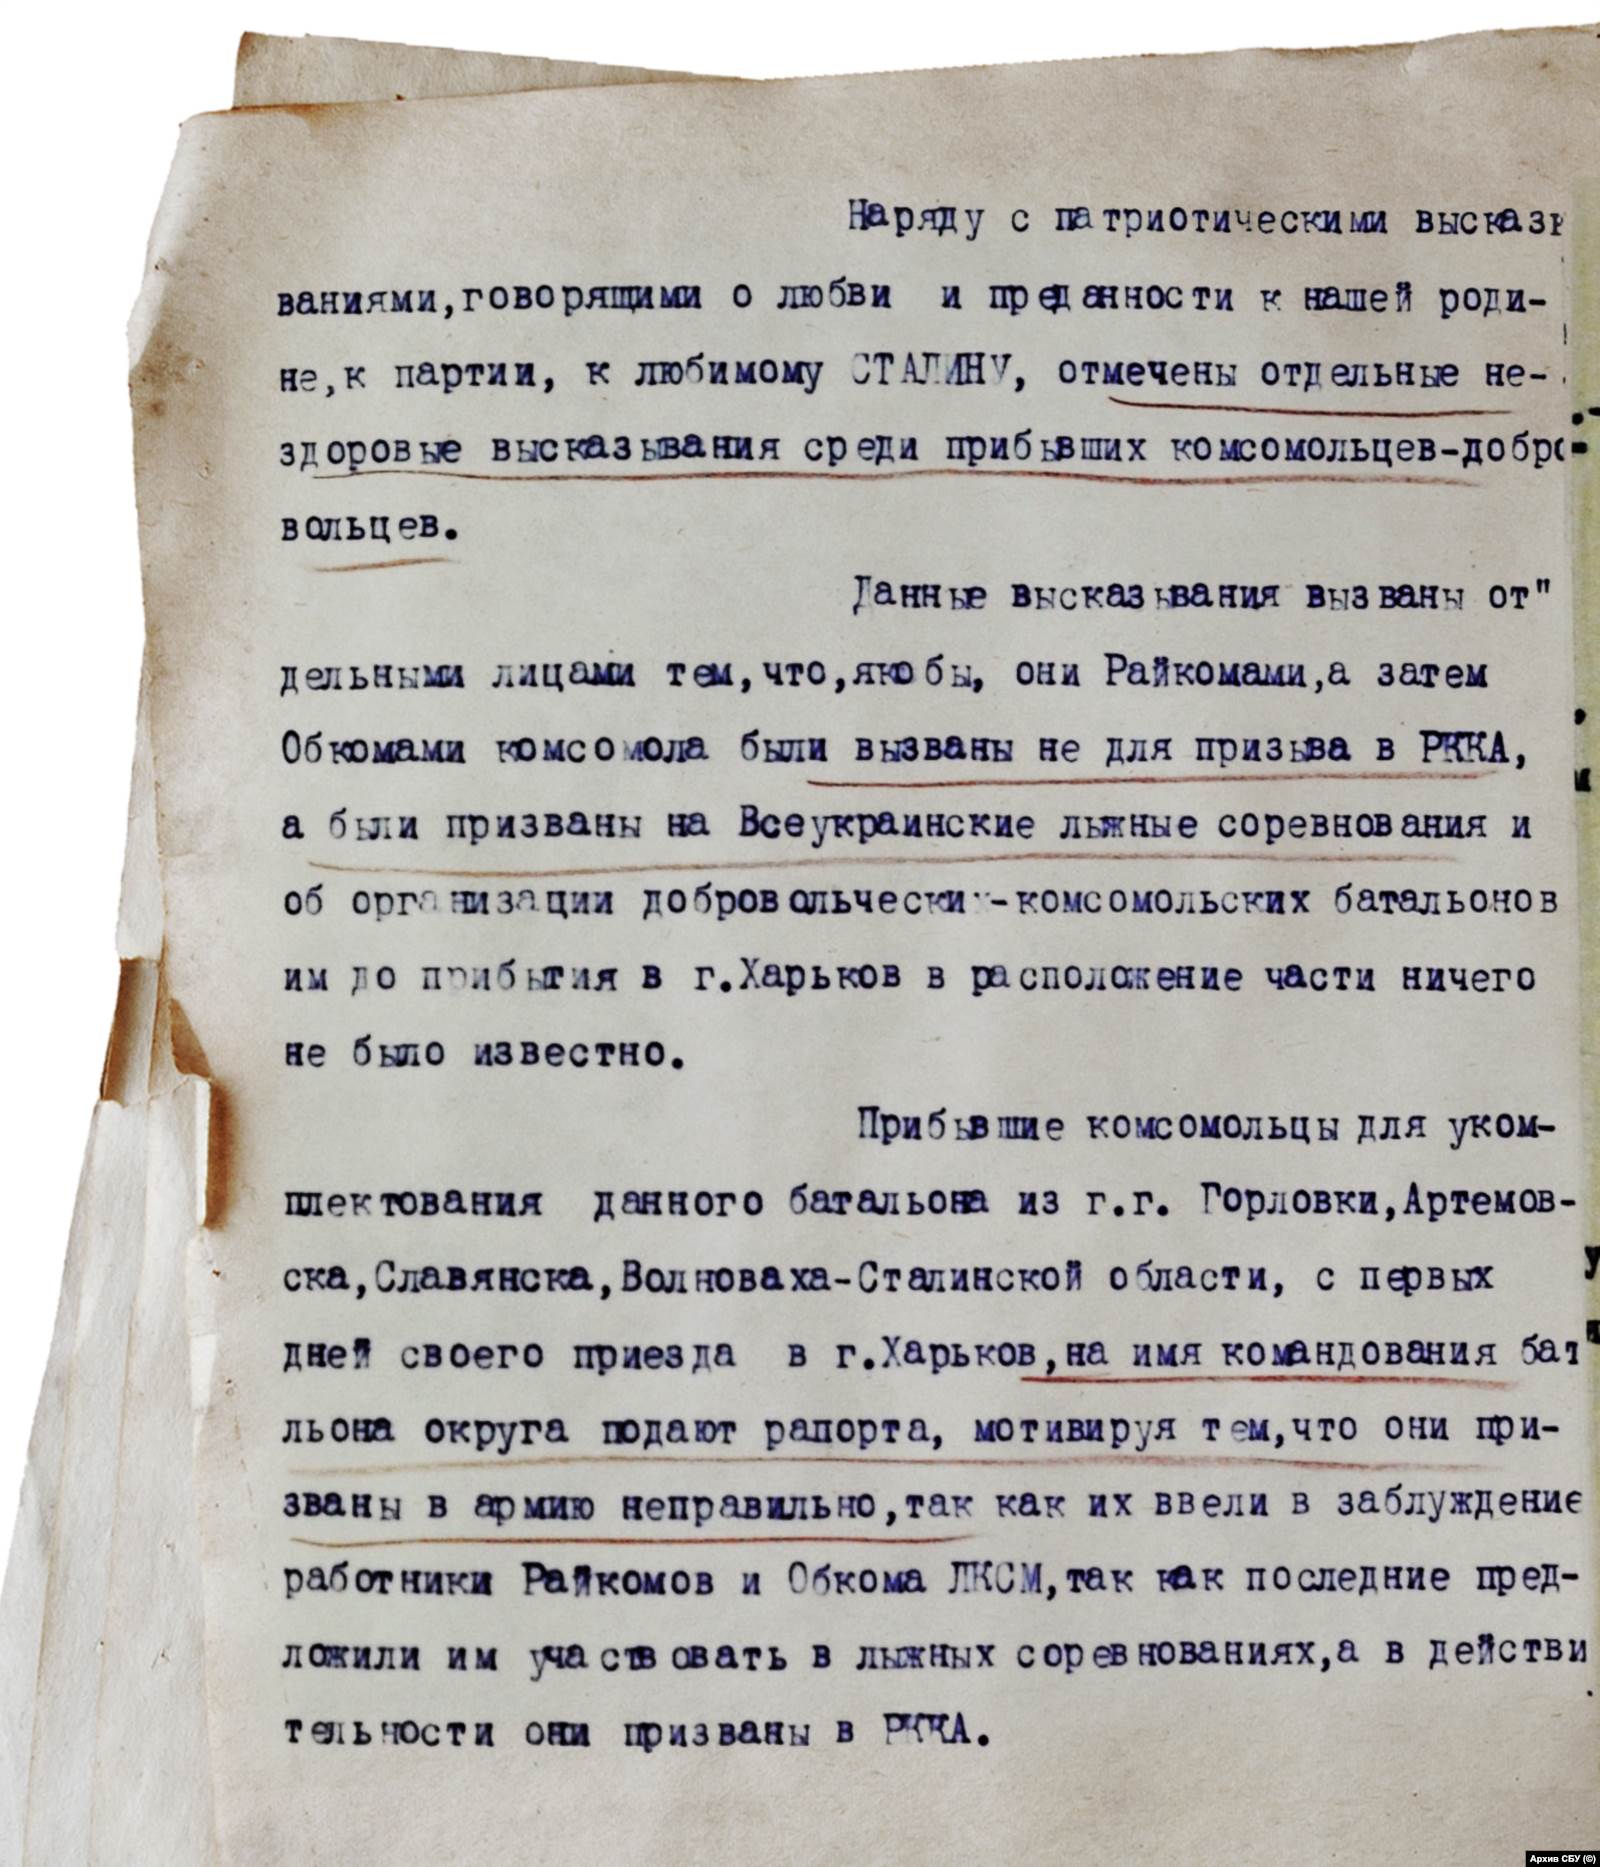 Наряду с патриотическими высказы
ваниями,говорящими о любви и преданности к нашей роди-
не,к партии, к любимому СТАЛИНУ, отмечены отдельные не-
здоровые высказывания среди прибывших комсомольцев-добро
вольцев.
Данные высказывания вызваны от"
дельными лицами тем,что,якобы, они Райкомами,а затем
Обкомами комсомола были вызваны не для призыва в РККА,
а были призваны на Всеукраинские лыжные соревнования и
об организации добровольческих-комсомольских батальонов
им до прибытия в г.Харьков в расположение части ничего
не было известно.
Прибывшие комсомольцы для уком-
плектования данного батальона из г.г. Горловки,Артемов-
ска,Славянска,Волноваха-Сталинской области, с первых
дней своего приезда в г.Харьков,на имя командования бат
льона округа подают рапорта, мотивируя тем,что они при-
званы в армию неправильно,так как их ввели в заблуждение
работники Райкомов и Обкома ЛКСМ,так как последние пред-
ложили им участвовать в лыжных соревнованиях,а в действи
тельности они призваны в РККА.
Архив СБУ (©)